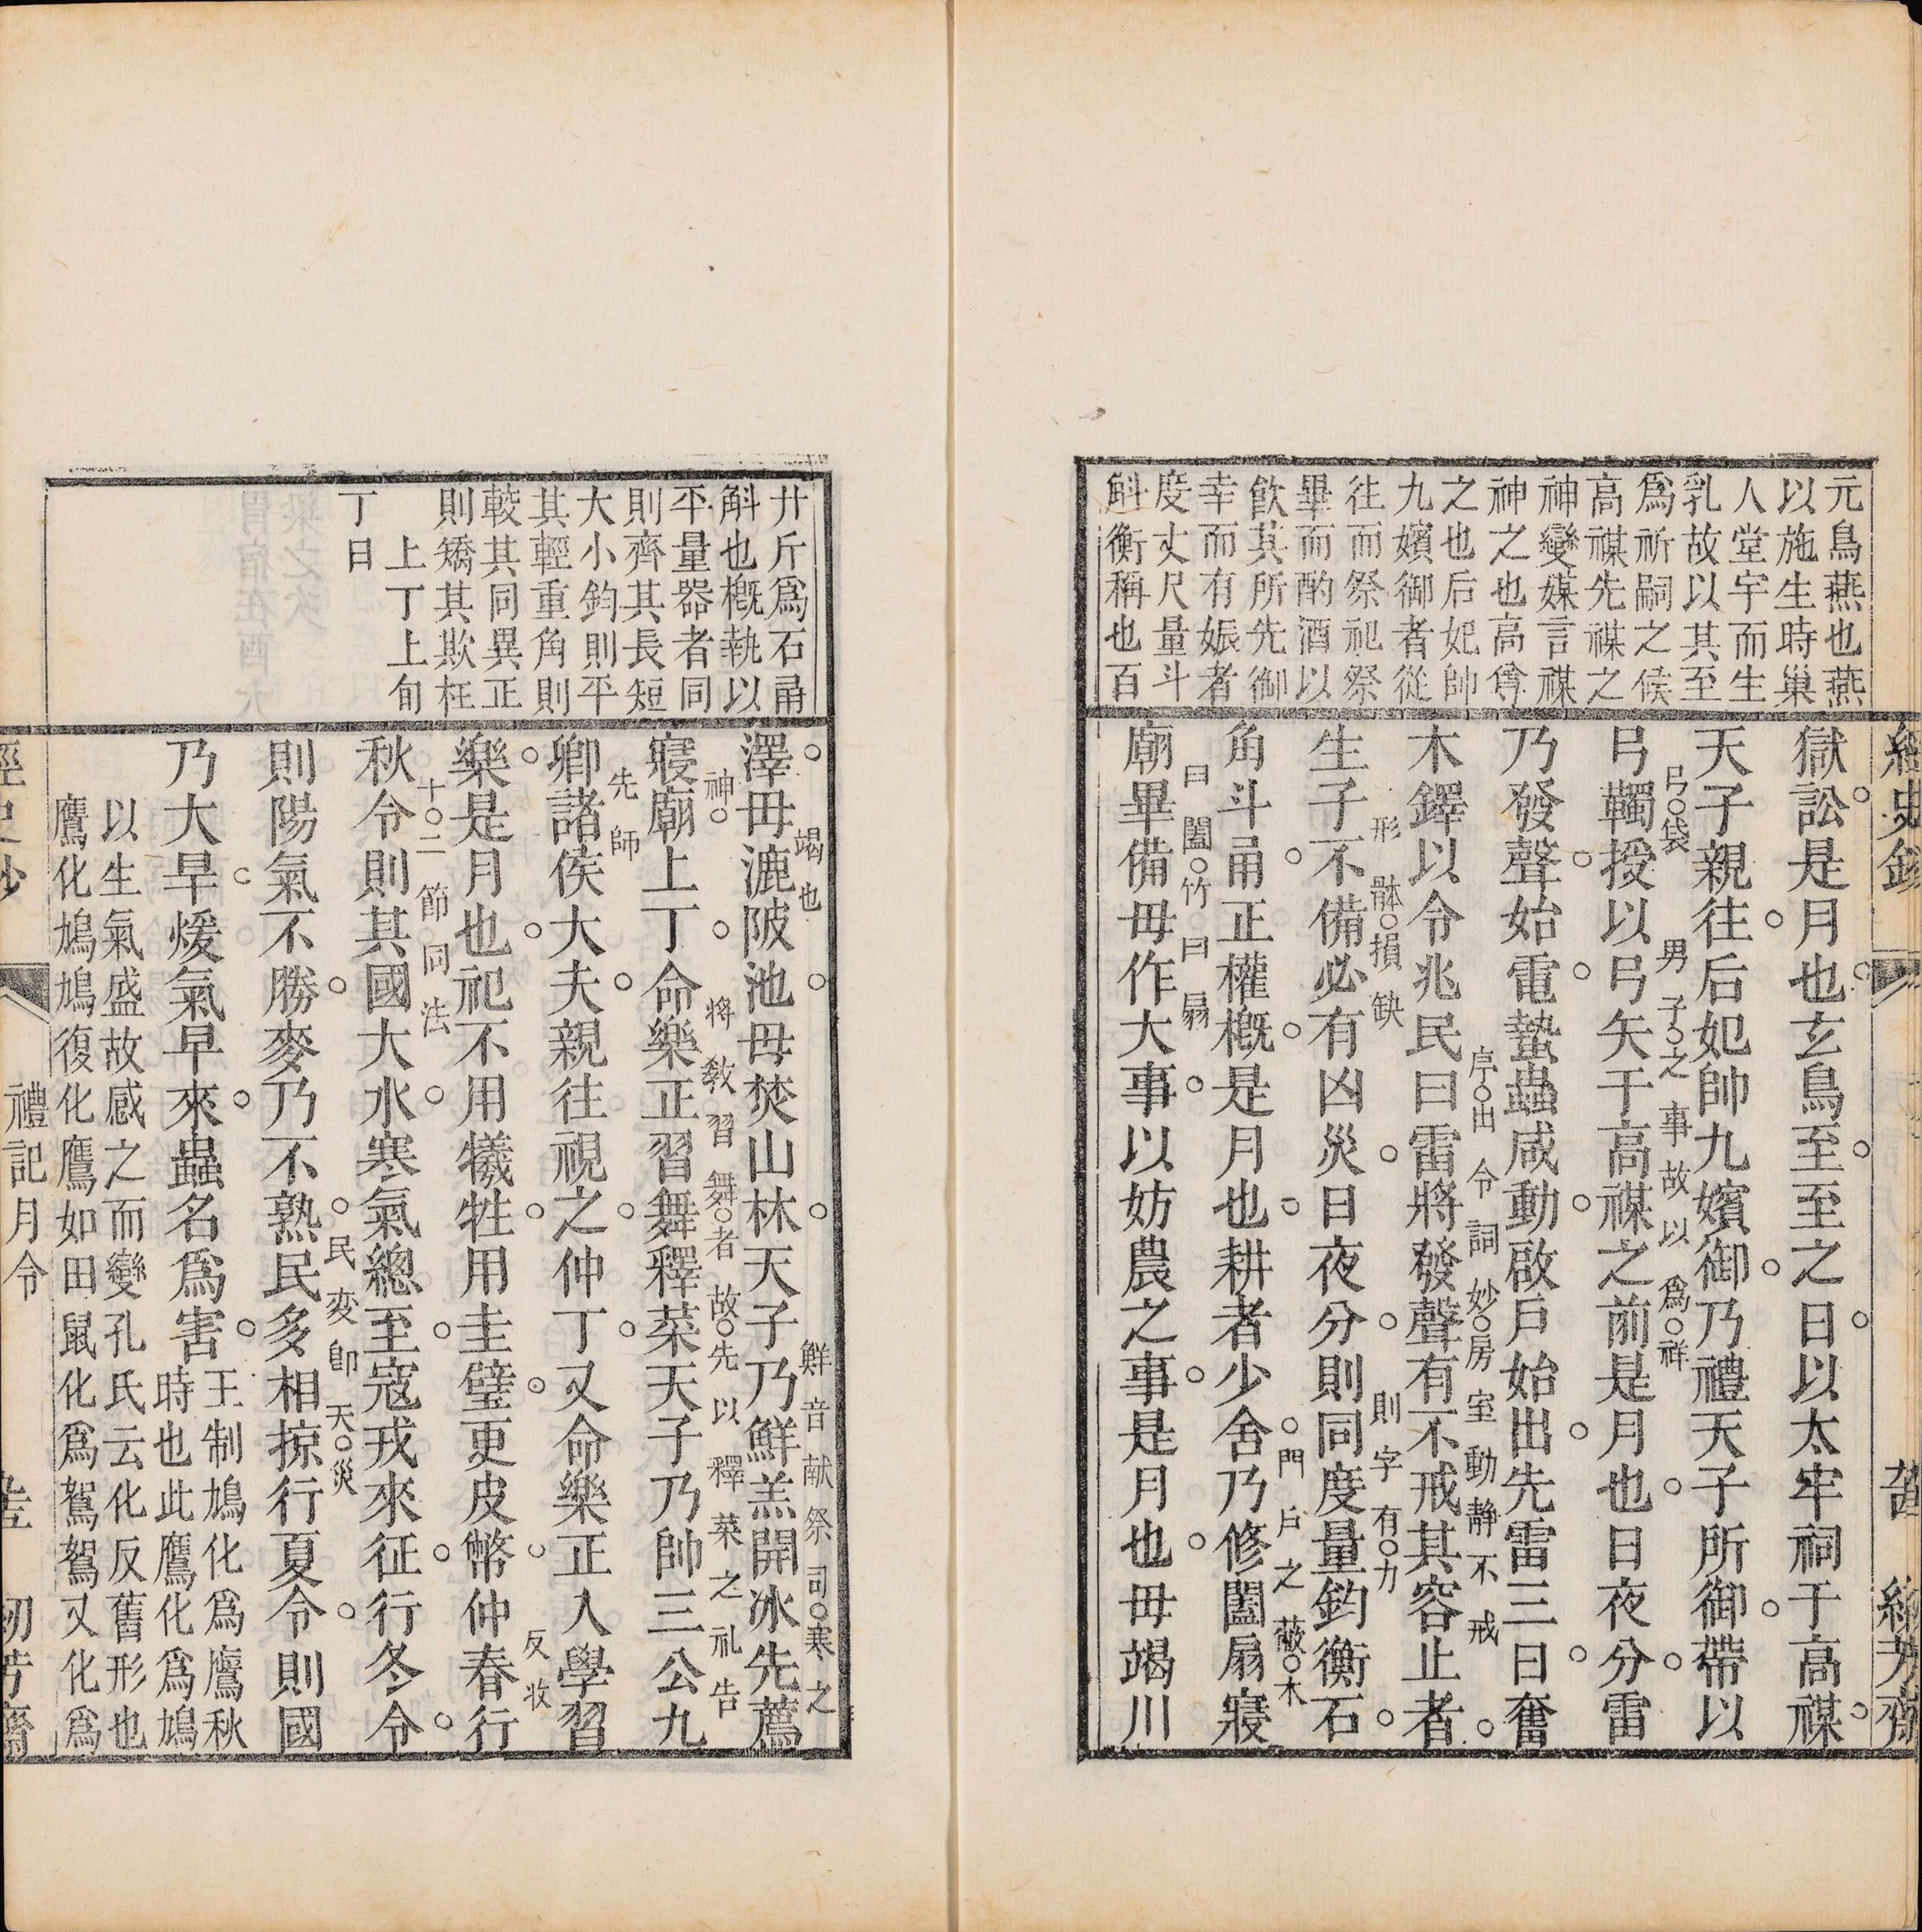 元鳥燕也燕
以施生時巢
人堂宇而生
乳故以其至
爲祈嗣之候
高禖先禖之
神變媒言禖
神之也高尊
之也后妃帥
九嬪御者從
往而祭祀祭
畢而酌酒以
飲其所先御
幸而有娠者
度丈尺量斗
斛衡稱也百
獄訟是月也玄鳥至至之日以太牢祠于高禖
天子親往后妃帥九嬪御乃禮天子所御帶以
弓○袋 男子○之事故以爲○祥
弓韣授以弓矢于高禖之前是月也日夜分雷
乃發聲始電蟄蟲咸動啟戶始出先雷三日奮
序○出令詞妙○房室動静不戒
木鐸以令兆民曰雷將發聲有不戒其容止者
形骵○損缺 則字有○力
生子不備必有凶災日夜分則同度量鈞衡石
門戶之蔽○木
角斗甬正權概是月也耕者少舍乃修闔扇寢
曰闔○竹曰扇
廟畢備毋作大事以妨農之事是月也毋竭川
廾斤爲石甬
斛也概執以
平量器者同
則齊其長短
大小鈞則平
其輕重角則
較其同異正
則矯其欺枉
上丁上旬
丁日
竭也 鮮音献祭司○寒之
澤毋漉陂池毋焚山林天子乃鮮羔開冰先薦
神○ 将教習舞○者故○先以釋菜之礼告
寢廟上丁命樂正習舞釋菜天子乃帥三公九
先師
卿諸侯大夫親往視之仲丁又命樂正入學習
反收
樂是月也祀不用犧牲用圭璧更皮幣仲春行
十○二節同法
秋令則其國大水寒氣總至寇戎來征行冬令
民変即天○災
則陽氣不勝麥乃不熟民多相掠行夏令則國
乃大旱煖氣早來蟲名爲害
王制鳩化爲鷹秋
時也此鷹化爲鳩
以生氣盛故感之而變孔氏云化反舊形也
鷹化鳩鳩復化鷹如田鼠化爲鴽鴽又化爲
禮記月令